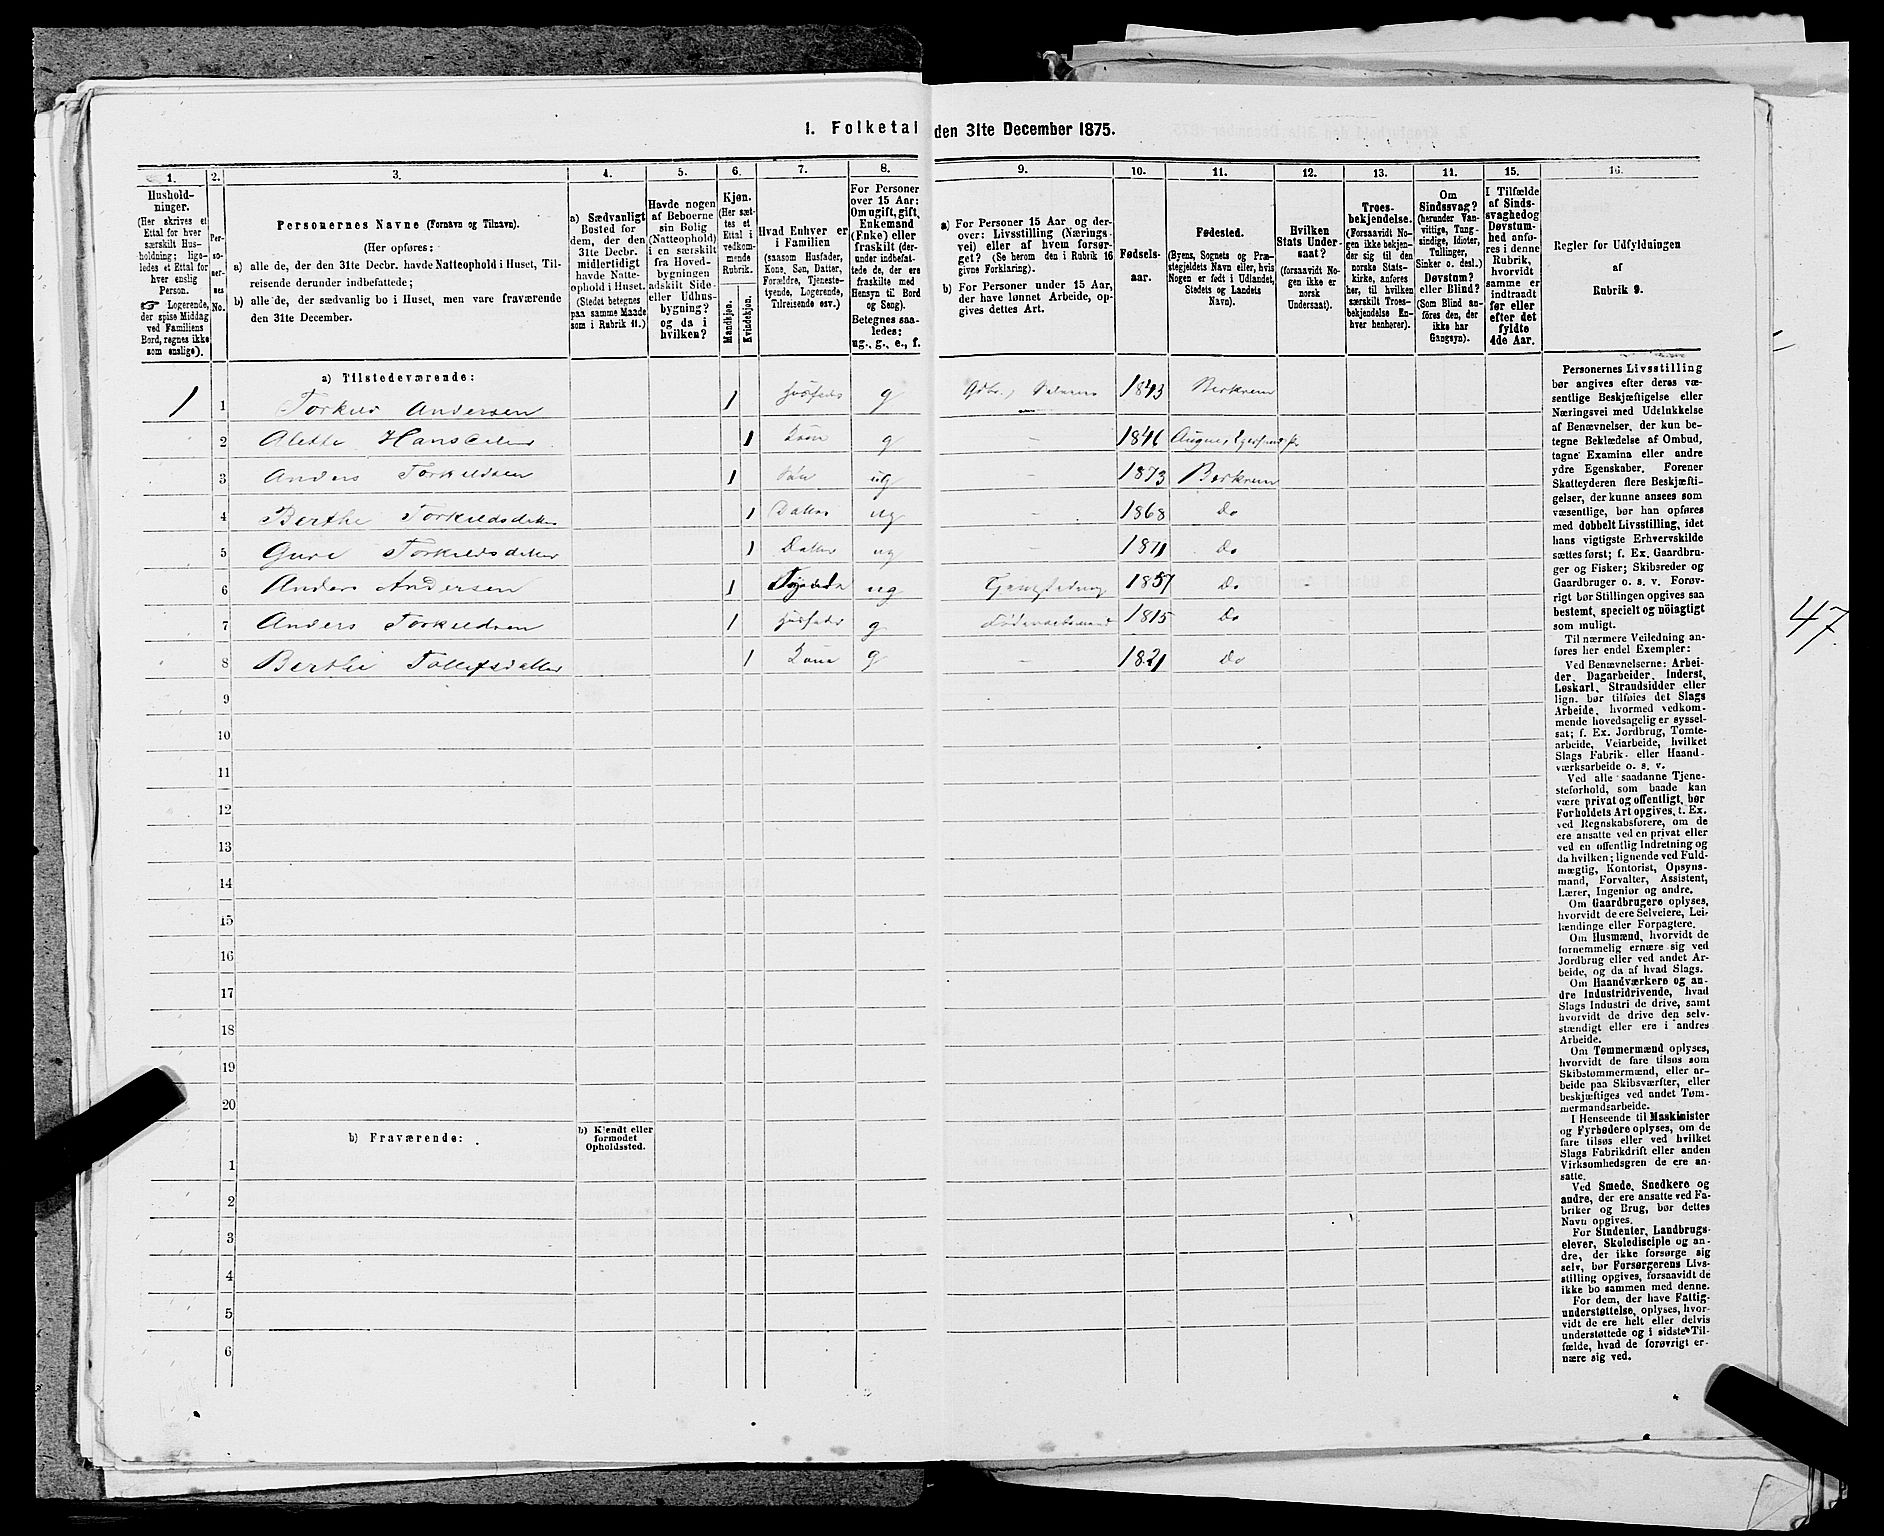 1. Folketal den 31te December 1875.
1. 2. 3. 4. 5. 6. 7. 8. 9. 10. 11. 12. 13. 14. 15. 16.
Hushold-
ninger.
(Her skrives et
Ettal for hver
særskilt Hus-
holdning; lige-
ledes et Ettal for
hver enslig
Person.
☞ Logerende,
der spise Middag
ved Familiens
Bord, regnes ikke
som enslige).
Per-
so-
ner-
nes
No.
Personernes Navne (Fornavn og Tilnavn).
(Her opføres:
a) alle de, der den 31te Decbr. havde Natteophold i Huset, Til-
reisende derunder indbefattede;
b) alle de, der sædvanlig bo i Huset, men vare fraværende
den 31te December.
a) Sædvanligt
Bosted for
dem, der den
31te Decbr.
midlertidigt
havde Natte-
ophold i Huset.
(Stedet betegnes
paa samme Maade
som i Rubrik 11.)
Havde nogen
af Beboerne
sin Bolig
(Natteophold)
i en særskilt
fra Hoved-
bygningen
adskilt Side-
eller Udhus-
bygning?
og da i
hvilken?
Kjøn.
(Her sæt-
tes et
Ettal i
vedkom-
mende
Rubrik.
Mandkjøn.
Kvindekjøn.
Hvad Enhver er
i Familien
(saasom Husfader,
Kone, Søn, Datter,
Forældre, Tjeneste-
tyende, Logerende,
Tilreisende osv.)
For Personer
over 15 Aar:
Om ugift, gift,
Enkemand
(Enke) eller
fraskilt (der-
under indbefat-
tede de, der ere
fraskilte med
Hensyn til Bord
og Seng).
Betegnes saa-
ledes:
ug., g., e., f.
a) For Personer 15 Aar og der-
over: Livsstilling (Nærings-
vei) eller af hvem forsør-
get? (Se herom den i Rubrik 16
givne Forklaring).
b) For Personer under 15 Aar,
der have lønnet Arbeide, op-
gives dettes Art.
Fødsels-
aar.
Fødested.
(Byens, Sognets og Præ-
stegjeldets Navn eller, hvis
Nogen er født i Udlandet,
Stedets og Landets
Navn).
Hvilken
Stats Under-
saat?
(forsaavidt No-
gen ikke er
norsk
Undersaat).
Troes-
bekjendelse.
(Forsaavidt No-
gen ikke bekjen-
der sig til den
norske Stats-
kirke, anføres
her, til hvilken
særskilt Troes-
bekjendelse En-
hver henhører).
Om
Sindssvag?
(herunder Van-
vittige, Tung-
sindige, Idioter,
Tullinger,
Sinker o. desl.)
Døvstum?
eller Blind?
(Som Blind an-
føres den, der
ikke har
Gangsyn).
I Tilfælde
af Sinds-
svaghed og
Døvstum-
hed anfø-
res i denne
Rubrik,
hvorvidt
samme er
indtraadt
før eller
efter det
fyldte
4de Aar.
Regler for Udfyldningen
af
Rubrik 9.
a) Tilstedeværende:
1 1 Andersen 1 g 1843 Berkrem
2 Hansdatter 1 Kone g – 1846
3 Anders Torkildsen 1 Søn ug – 1873 Berkrem
4 Berthe Torkildsdatter 1 Datter ug – 1868 Do
5 Guri Torkildsdatter 1 Datter ug – 1871 Do
6 Anders Andersen 1 ug 1857 Do
7 Anders Torkildsen 1 Husfader g Føderaadsmand 1815 Do
8 Berthe Tollefsdatter 1 Kone g – 1821 Do
9
10
11
12
13
14
15
16
17
18
19
20
b) Fraværende:
b) Kjendt eller
formodet
Opholdssted.
1
2
3
4
5
6
Personernes Livsstilling
bør angives efter deres væ-
sentlige Beskjæftigelse eller
Næringsvei med Udelukkelse
af Benævnelser, der kun be-
tegne Beklædelse af Ombud,
tagne Examina eller andre
ydre Egenskaber. Forener
Skatteyderen flere Beskjæfti-
gelser, der kunne ansees som
væsentlige, bør han opføres
med dobbelt Livsstilling, idet
hans vigtigste Erhvervskilde
sættes først; f. Ex. Gaardbru-
ger og Fisker; Skibsreder og
Gaardbruger o. s. v. Forøv-
rigt bør Stillingen opgives saa
bestemt, specielt og nöiagtigt
som muligt.
Til nærmere Veiledning an-
føres her endel Exempler:
Ved Benævnelserne: Arbei-
der, Dagarbeider, Inderst,
Løskarl, Strandsidder eller
lign. bør tilføies det Slags
Arbeide, hvormed vedkom-
mende hovedsagelig er syssel-
sat; f. Ex. Jordbrug, Tomte-
arbeide, Veiarbeide, hvilket
Slags Fabrik- eller Haand-
værksarbeide o. s. v.
Ved alle saadanne Tjene-
steforhold, som baade kan
være privat og offentligt, bør
Forholdets Art opgives, t. Ex.
ved Regnskabsførere, om de
ere ansatte ved en privat eller
ved en offentlig Indretning og
da hvilken; lignende ved Fuld-
mægtig, Kontorist, Opsyns-
mand, Forvalter, Assistent,
Lærer, Ingeniør og andre.
Om Gaardbrugere oplyses,
hvorvidt de ere Selveiere, Lei-
lændinge eller Forpagtere.
Om Husmænd, hvorvidt de
fornemmelig ernære sig ved
Jordbrug eller ved andet Ar-
beide, og da af hvad Slags.
Om Haandværkere og an-
dre Industridrivende, hvad
Slags Industri de drive, samt
hvorvidt de drive den selv-
stændigt eller ere i andres
Arbeide.
Om Tømmermænd oplyses,
hvorvidt de fare tilsøs som
Skibstømmermænd, eller ar-
beide paa Skibsværfter, eller
beskjæftiges ved andet Tøm-
mermandsarbeide.
I Henseende til Maskinister
og Fyrbødere oplyses, om de
fare tilsøs eller ved hvilket
Slags Fabrikdrift eller anden
Virksomhedsgren de ere an-
satte.
Ved Smede, Snedkere og
andre, der ere ansatte ved Fa-
briker og Brug, bør dettes
Navn opgives.
For Studenter, Landbrugs-
elever, Skoledisciple og an-
dre, der ikke forsørge sig
selv, bør Forsørgerens Livs-
stilling opgives, forsaavidt de
ikke bo sammen med denne.
For dem, der have Fattig-
understøttelse, oplyses, hvor-
vidt de ere helt eller delvis
understøttede og i sidste Til-
fælde, hvad de forøvrigt er-
nære sig ved.
47.